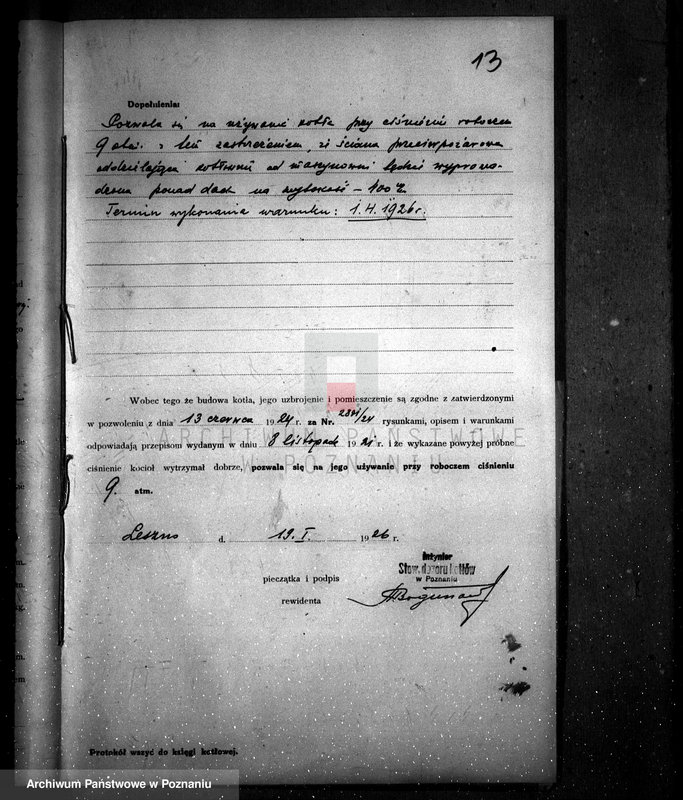 13
Dopełnienia:
Pozwala się na używanie kotła przy ciśnieniu roboczem
9 atm. z tem zastrzeżeniem, że ściana przeciwpożarowa
oddzielająca kotłownię od maszynowni będzie wyprowa-
dzona ponad dach na wysokość – 100
Termin wykonania warunku: 1. 4. 1926 r.
Wobec tego że budowa kotła, jego uzbrojenie i pomieszczenie są zgodne z zatwierdzonymi
w pozwoleniu z dnia 13 czerwca 1924 r. za Nr. /24 rysunkami, opisem i warunkami
odpowiadają przepisom wydanym w dniu 8 listopada 1921 r. i że wykazane powyżej próbne
ciśnienie kocioł wytrzymał dobrze, pozwala się na jego używanie przy roboczem ciśnieniu
9. atm.
ARCHIWUM PAŃSTWOWE
W POZNANIU
Leszno d. 19. I. 1926 r.
Inżynier
Stow. dozoru kotłów
w Poznaniu
pieczątka i podpis
rewidenta
Protokół wszyć do księgi kotłowej.
Archiwum Państwowe w Poznaniu